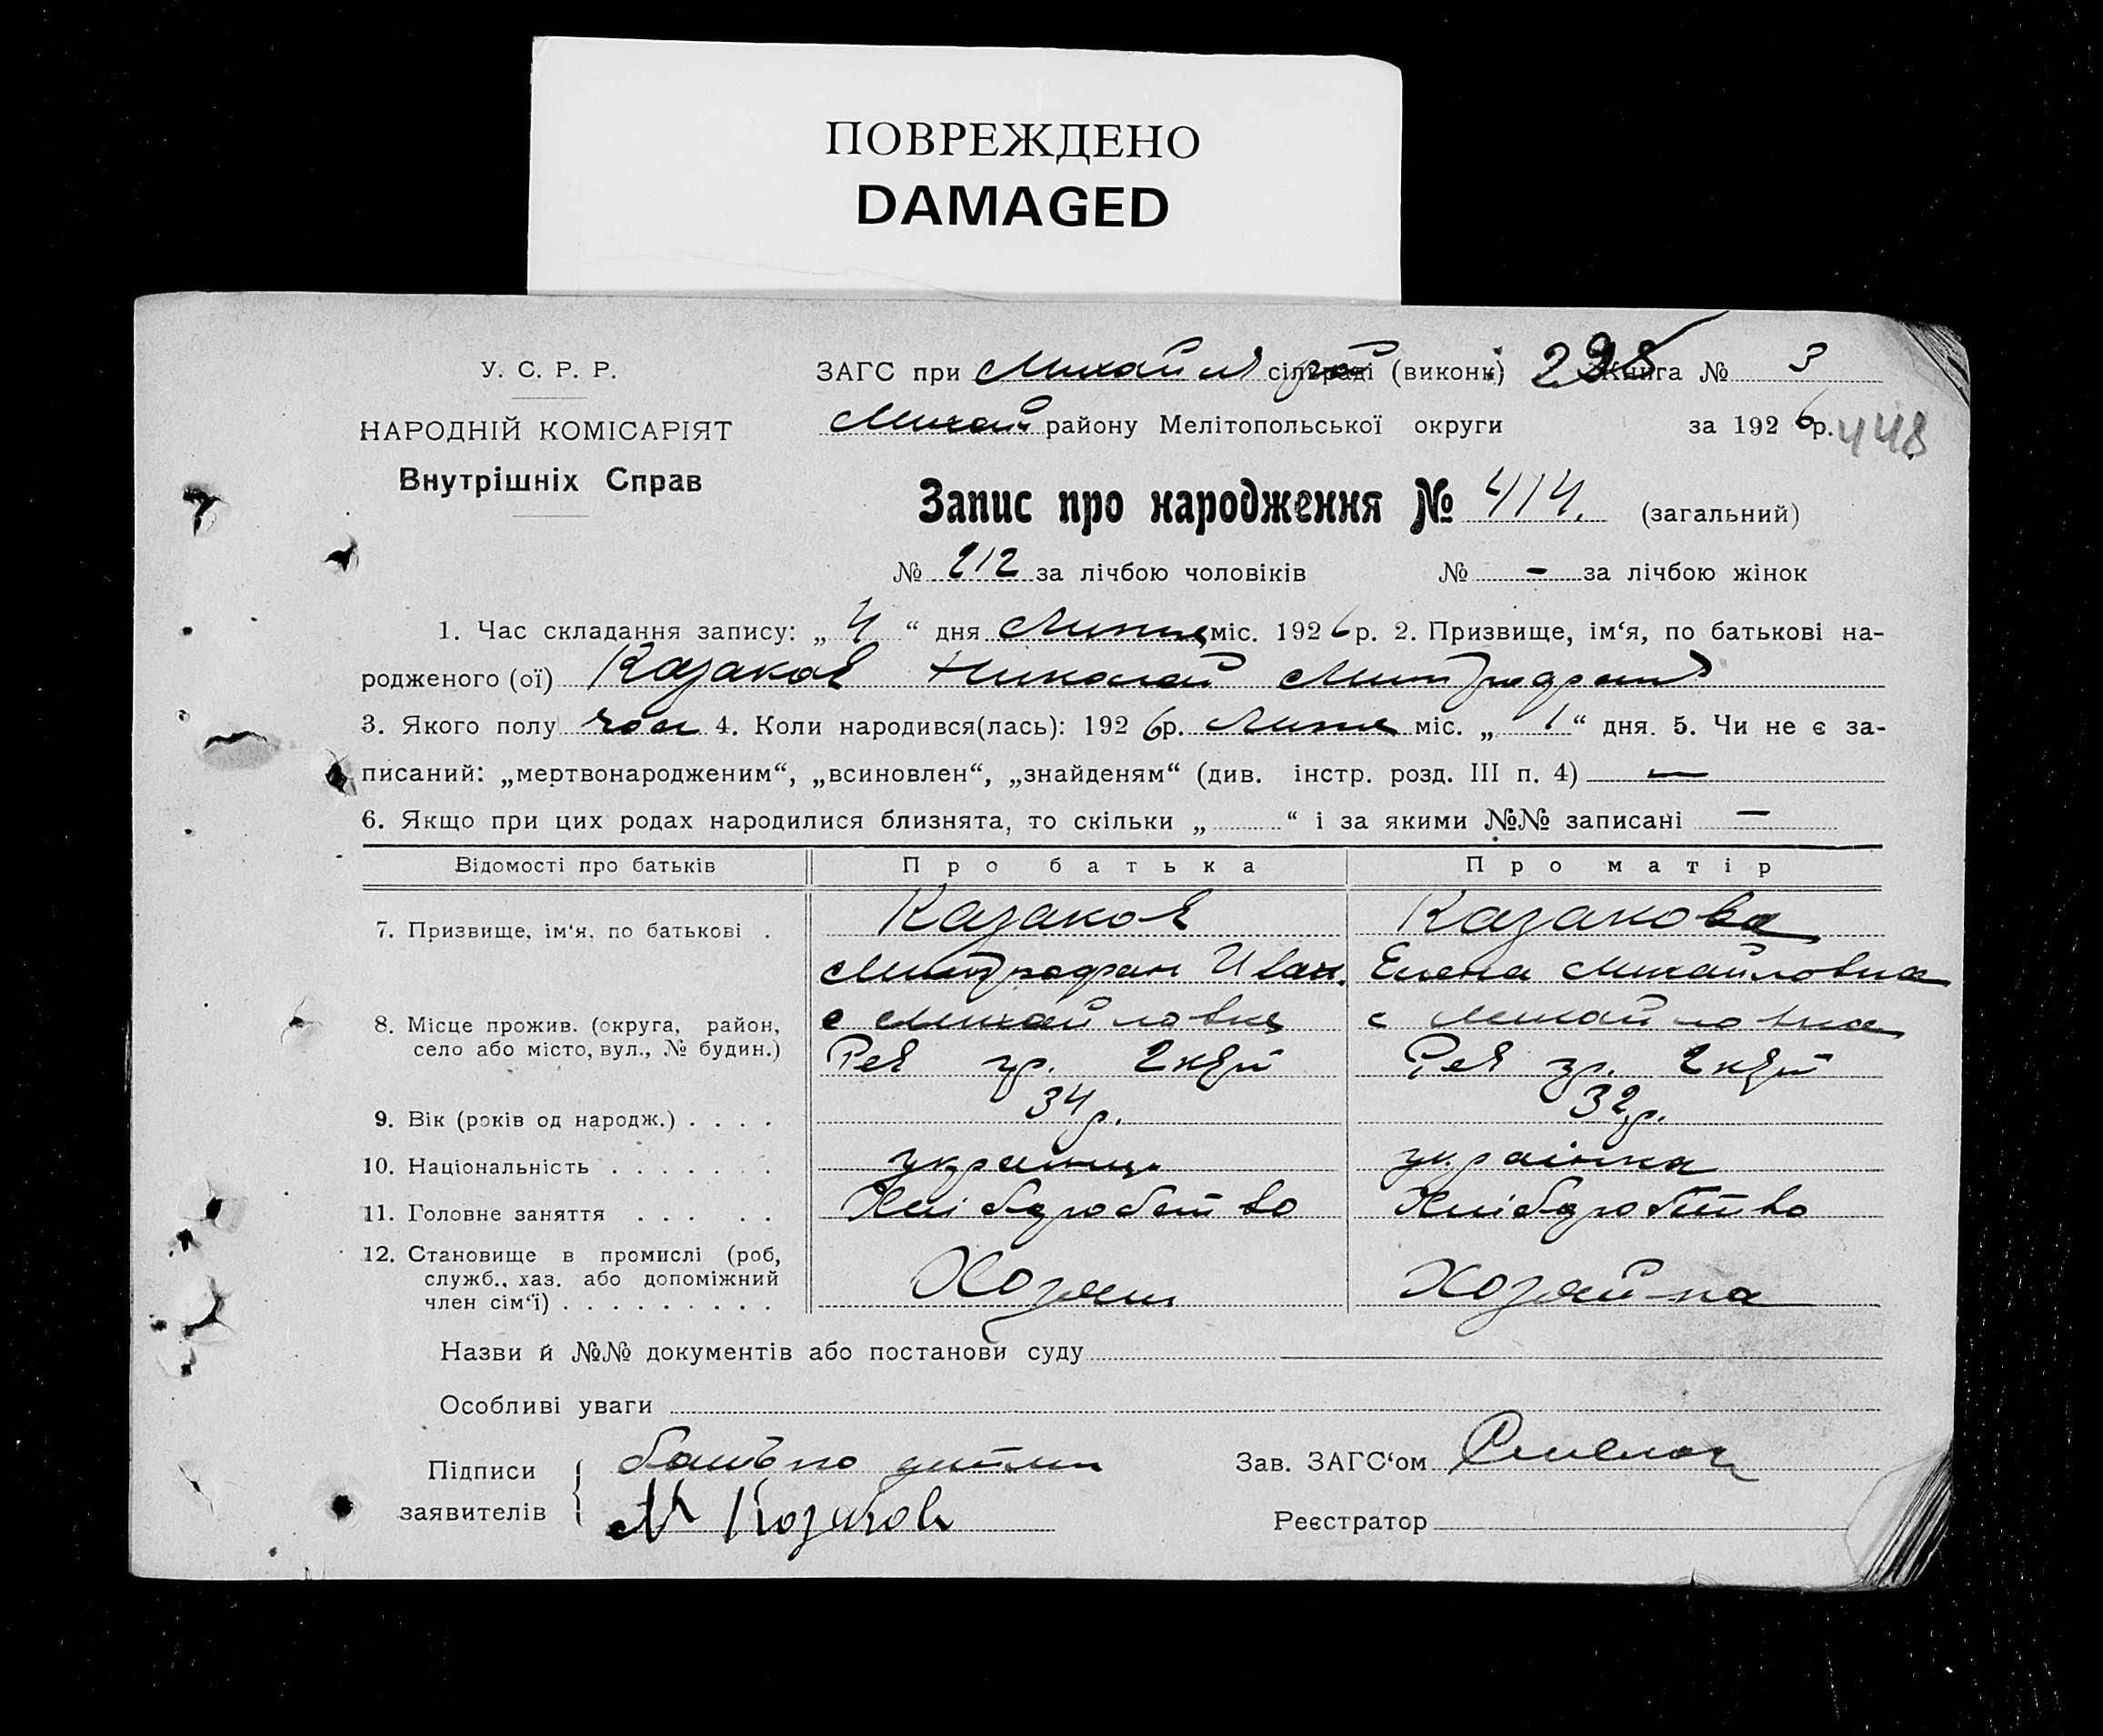 ПОВРЕЖДЕНО
DAMAGED
У. С. Р. Р.
НАРОДНІЙ КОМІСАРІЯТ
Внутрішніх Справ
ЗАГС при Михайл сільраді (виконк) 298 Книга № 3
Михай районy Мелітопольської округи за 1926 р. 448
Запис про народження № 414. (загальний)
№ 212 за лічбою чоловіків № - за лічбою жінок
1. Час складання запису: „ 4 “ дня Липця міс. 1926 р. 2. Призвище, ім‘я, по батькові на-
родженого (ої) Казаков Николай Митрофан
3. Якого полу чол 4. Коли народився(лась): 1926 р. Липця міс. „ 1 “ дня. 5. Чи не є за-
писаний: „мертвонародженим“, „всиновлен“, „знайденям“ (див. інстр. розд. III п. 4) —
6. Якщо при цих родах народилися близнята, то скільки „ “ і за якими №№ записані —
Відомості про батьків Про батька Про матір
7. Призвище, ім‘я, по батькові . Казаков Казакова
Митрофан Иван. Елена Михайловна
8. Місце прожив. (округа, район, село або місто, вул., № будин.) с Михайловка с Михайловка
Рев гр. 2 Рев гр. 2
9. Вік (років од народж.) . . . . 34 р. 32 р.
10. Національність . . . . . . . українець українка
11. Головне заняття . . . . . Хлібдробство Хлібдробство
12. Становище в промислі (роб, служб., хаз. або допоміжний член сім‘ї) . . . . . . . . . Хозяин Хозяйка
Назви й №№ документів або постанови суду
Особливі уваги
Підписи заявителів батько дитини Зав. ЗАГС‘ом
М Козаков Реєстратор